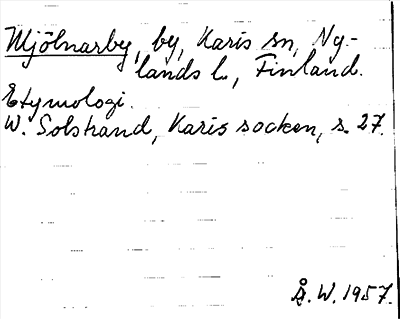 Mjölnarby, by, Karis sn, Ny-
lands l., Finland.
Etymologi.
W. Solstrand, Karis socken, s. 27.
Å. W. 1957.